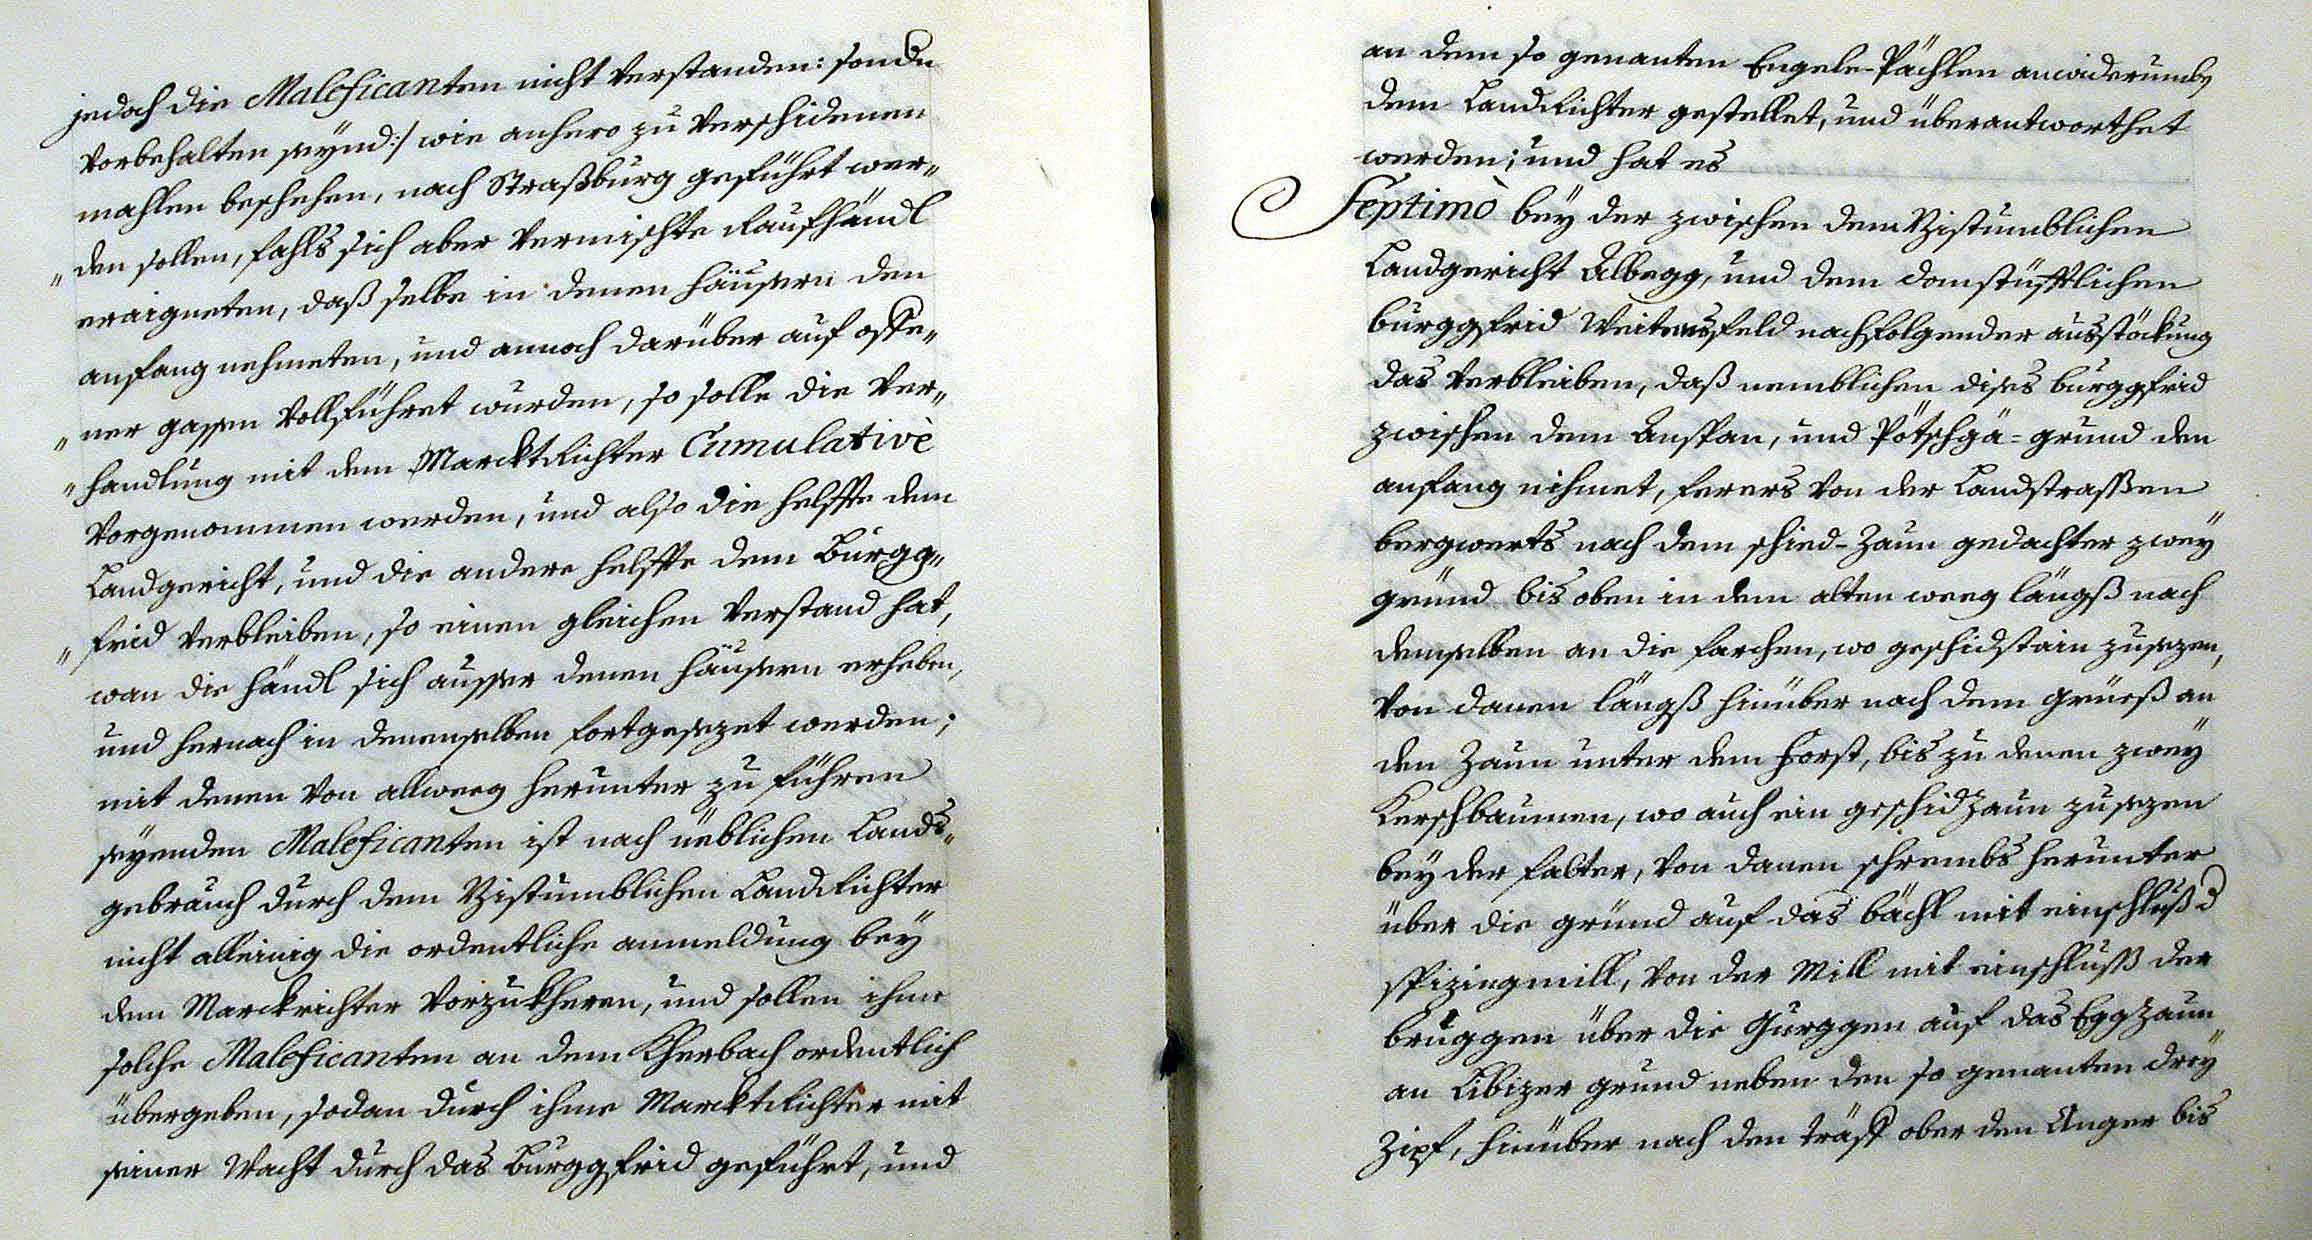 jedoch die Maleficanten nicht verstanden: sondn
vorbehalten seynd:/ wie anhero zu verschidenen
mahlen beschehen, nach Straßburg geführt wer„
„den sollen, fahls sich aber vermischte Raufhändl
eraigneten, daß selbe in denen häusern den
anfang nehmeten, und annoch darüber auf offe„
„ner gassen vollführet wurden, so solle die ver„
„handlung mit dem MarcktRichter Cumulativè
vorgenommen werden, und also die helffte dem
Landgericht, und die andere helffte dem Burgg„
„frid verbleiben, so einen gleichen verstand hat,
wan die händl sich ausser denen häusern erheben,
und hernach in denenselben fortgesezet werden;
mit denen von allweeg herunter zu führen
seyenden Maleficanten ist nach üeblichen Lands„
gebrauch durch dem Vizstumblichen LandRichter
nicht alleinig die ordentliche anmeldung bey
dem Marckrichter vorzukheren, und sollen ihme
solche Maleficanten an dem Kherbach ordentlich
übergeben, sodan durch ihme MarcktRichter mit
seiner Wacht durch das Burggfrid geführt, und
an dem so genanten Engele-Pächlen anwiderumb
dem LandRichter gestellet, und überantworthet
werden; und hat es
Septimò bey der zwischen dem Vizstumblichen
Landgericht Albegg, und dem domstüfftlichen
burggfrid Weitensfeld nachfolgender ausstöckung
das verbleiben, daß nemblichen dises burggfrid
zwischen dem Anspan, und Pötschgä=grund den
anfang nihmet, ferers von der Landstrassen
bergwerts nach dem schied-Zaun gedachter zwey
gründ bis oben in dem alten weeg längß nach
demselben an die farchen, wo geschidstain zusezen,
von danen längß hinüber nach dem grieß an
den Zaun unter dem forst, bis zu denen zwey
Kerschbaumen, wo auch ein geschidzaun zusezen
bey der falter, von danen schrembs herunter
über die gründ auf das bächl mit einschluß d
spizingmill, von der Mill mit einschluß der
bruggen über die Gurggen auf das Eggzaun
an Libizer grund neben den so genanten drey
Zipf, hinüber nach den träff ober den Anger bis